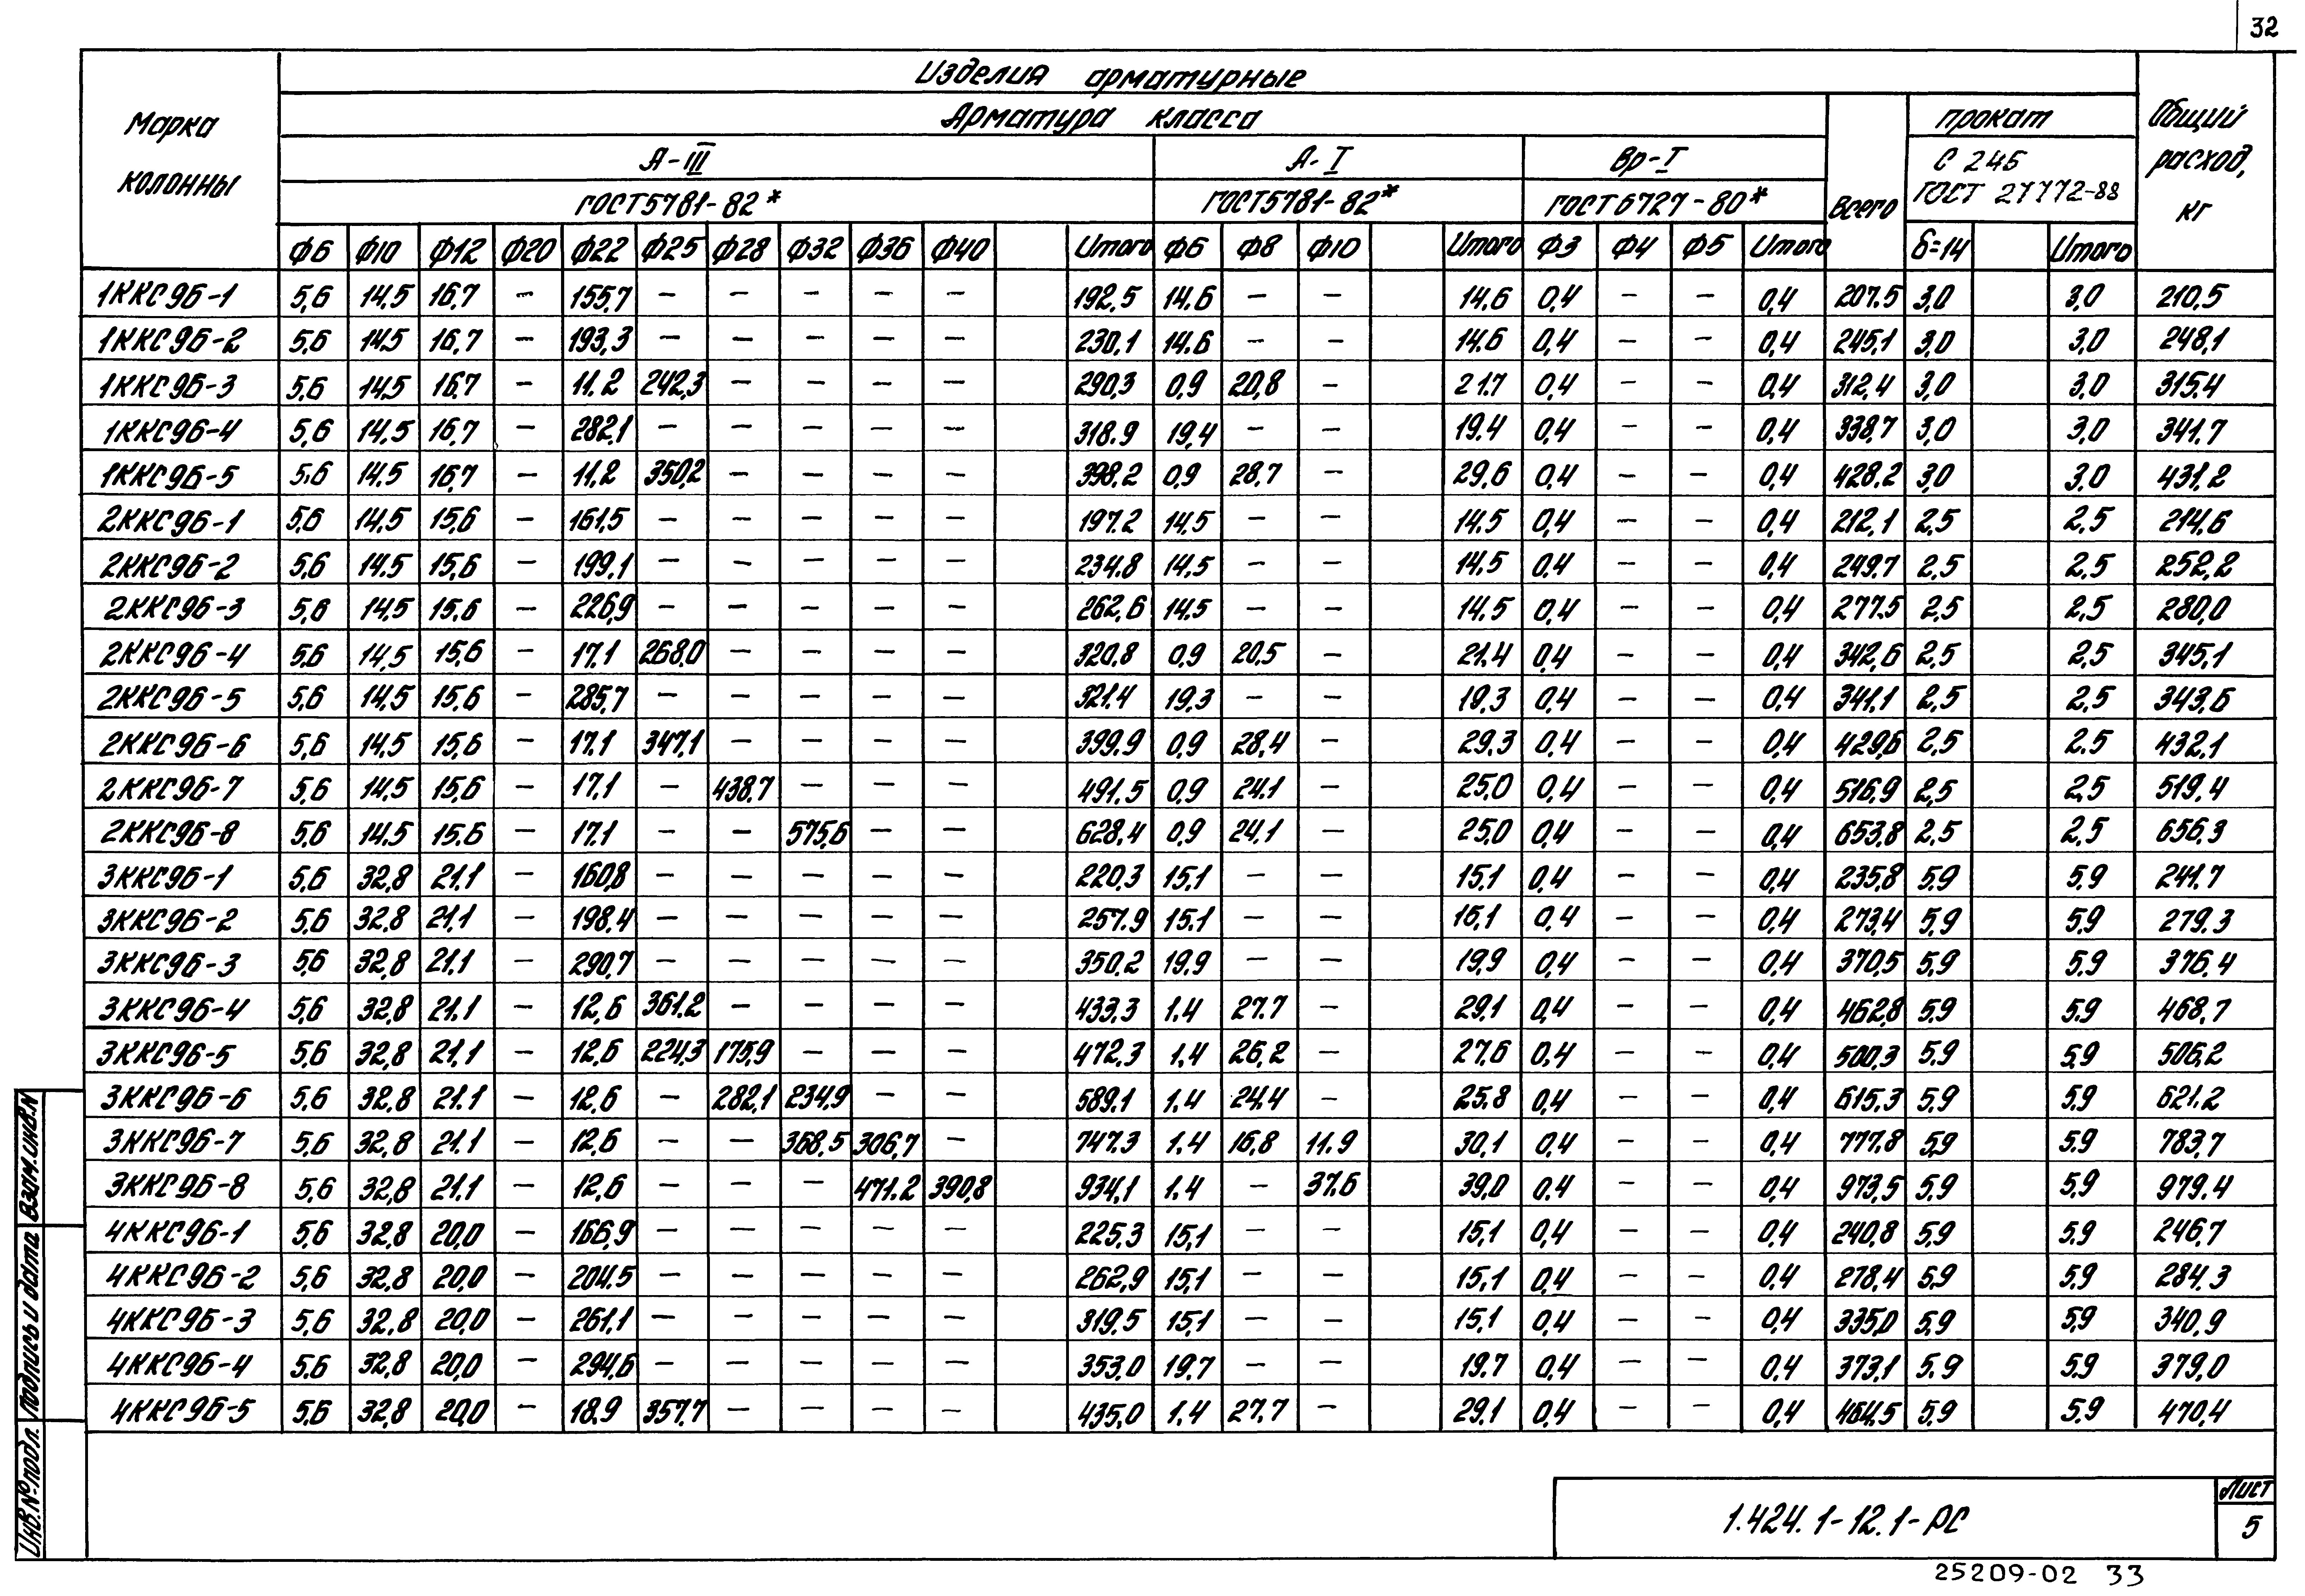 32
Изделия арматурные
Марка колонны
Арматура класса
прокат
Общий расход, кг
А-III
А-I
Вр-I
Всего
С 245
ГОСТ 27772-88
ГОСТ 5781-82*
ГОСТ 5781-82*
ГОСТ 6727-80*
Ф6 Ф10 Ф12 Ф20 Ф22 Ф25 Ф28 Ф32 Ф36 Ф40 Итого Ф6 Ф8 Ф10 Итого Ф3 Ф4 Ф5 Итого δ=14 Итого
1ККС96-1 5,6 14,5 16,7 — 155,7 — — — — — 192,5 14,6 — — 14,6 0,4 — — 0,4 207,5 3,0 3,0 210,5
1ККС96-2 5,6 14,5 16,7 — 193,3 — — — — — 230,1 14,6 — — 14,6 0,4 — — 0,4 245,1 3,0 3,0 248,1
1ККС96-3 5,6 14,5 16,7 — 11.2 242,3 — — — — 290,3 0,9 20,8 — 21.7 0,4 — — 0,4 312,4 3,0 3,0 315,4
1ККС96-4 5,6 14,5 16,7 — 282,1 — — — — — 318.9 19,4 — — 19.4 0,4 — — 0,4 338,7 3,0 3,0 341,7
1ККС96-5 5,6 14,5 16,7 — 11,2 350,2 — — — — 398,2 0,9 28,7 — 29,6 0,4 — — 0,4 428,2 3,0 3.0 431,2
2ККС96-1 5,6 14,5 15,6 — 161,5 — — — — — 197.2 14,5 — — 14,5 0,4 — — 0,4 212,1 2,5 2,5 214,6
2ККС96-2 5,6 14,5 15,6 — 199,1 — — — — — 234,8 14,5 — — 14,5 0,4 — — 0,4 249,7 2,5 2,5 252,2
2ККС96-3 5,6 14,5 15,6 — 226,9 — — — — — 262,6 14,5 — — 14,5 0,4 — — 0,4 277,5 2,5 2,5 280,0
2ККС96-4 5,6 14,5 15,6 — 17,1 268,0 — — — — 320,8 0,9 20,5 — 21,4 0,4 — — 0,4 342,6 2,5 2,5 345,1
2ККС96-5 5,6 14,5 15,6 — 285,7 — — — — — 321,4 19,3 — — 19,3 0,4 — — 0,4 341,1 2,5 2,5 343,6
2ККС96-6 5,6 14,5 15,6 — 17,1 347,1 — — — — 399,9 0,9 28,4 — 29,3 0,4 — — 0,4 429,6 2,5 2.5 432,1
2ККС96-7 5,6 14,5 15,6 — 17,1 — 438,7 — — — 491,5 0,9 24,1 — 25,0 0,4 — — 0,4 516,9 2,5 2,5 519,4
2ККС96-8 5,6 14,5 15,6 — 17,1 — — 575,6 — — 628,4 0,9 24,1 — 25,0 0,4 — — 0,4 653,8 2,5 2,5 656,3
3ККС96-1 5,6 32,8 21,1 — 160,8 — — — — — 220,3 15,1 — — 15,1 0,4 — — 0,4 235,8 5,9 5,9 241,7
3ККС96-2 5,6 32,8 21,1 — 198,4 — — — — — 257.9 15,1 — — 15,1 0,4 — — 0,4 273,4 5,9 5,9 279,3
3ККС96-3 5,6 32,8 21,1 — 290,7 — — — — — 350,2 19,9 — — 19,9 0,4 — — 0,4 370,5 5,9 5,9 376,4
3ККС96-4 5,6 32,8 21,1 — 12,6 361,2 — — — — 433,3 1.4 27.7 — 29,1 0,4 — — 0,4 462,8 5,9 5.9 468,7
3ККС96-5 5,6 32,8 21,1 — 12,6 224,3 175,9 — — — 472,3 1,4 26,2 — 27,6 0,4 — — 0,4 500,3 5,9 5,9 506,2
3ККС96-6 5,6 32,8 21.1 — 12,6 — 282,1 234,9 — — 589,1 1.4 24.4 — 25.8 0,4 — — 0,4 615,3 5,9 5,9 621,2
3ККС96-7 5,6 32,8 21,1 — 12,6 — — 368,5 306,7 — 747,3 1.4 16,8 11.9 30,1 0,4 — — 0,4 777,8 5,9 5.9 783,7
3ККС96-8 5,6 32,8 21,1 — 12,6 — — — 471.2 390,8 934,1 1.4 — 37.6 39,0 0.4 — — 0,4 973,5 5,9 5.9 979.4
4ККС96-1 5,6 32,8 20,0 — 166,9 — — — — — 225,3 15,1 — — 15,1 0,4 — — 0,4 240,8 5,9 5,9 246,7
4ККС96-2 5,6 32,8 20,0 — 204,5 — — — — — 262,9 15,1 — — 15,1 0,4 — — 0,4 278,4 5,9 5,9 284,3
4ККС96-3 5,6 32,8 20,0 — 261,1 — — — — — 319,5 15,1 — — 15,1 0,4 — — 0,4 335,0 5,9 5,9 340,9
4ККС96-4 5,6 32,8 20,0 — 294,6 — — — — — 353,0 19,7 — — 19,7 0,4 — — 0,4 373,1 5,9 5,9 379,0
4ККС96-5 5,6 32,8 20,0 — 18.9 357,7 — — — — 435,0 1.4 27,7 — 29,1 0,4 — — 0,4 464,5 5,9 5.9 470,4
Инв.№ подл. Подпись и дата Взам.инв.№
1.424.1-12.1-РС
Лист
5
25209-02 33